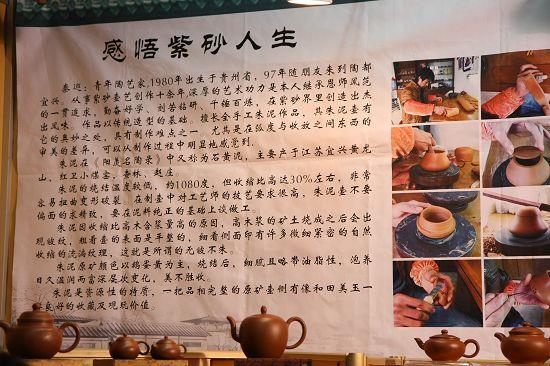 感悟紫砂人生
秦迎：青年陶艺家，1980年出生于贵州省，97年随朋友来到陶都
宜兴。从事紫砂壶艺创作十余年深厚的艺术功力是本人继承恩师风范
的一贯追求，勤奋好学、刻苦钻研、千锤百炼，在紫砂界里创造出杰
出风味。作品以传统造型的基础，擅长全手工朱泥作品，其朱泥壶有
它的奥妙之处，具有制作难点之一，尤其是在弧度与收放之间东西的
审美的差异，可以从制作过程中明显地感觉到。
朱泥在《阳羡茗陶录》中又称为石黄泥，主要产于江苏宜兴黄龙
山、红卫小煤窑、香林、赵庄。
朱泥的烧结温度较低，约1080度，但收缩比高达30%左右，非常
容易扭曲变形破裂。在制壶中对工艺师的技艺要求很高，朱泥壶不要
偏面的求精致，要在泥料纯正的基础上谈做工。
朱泥因收缩比高木含浆量高的原因，高木浆的矿土烧成之后会出
现皱纹，粗看壶的表面是平整的，细看侧面即有许多微细紧密的自然
收缩的流漪纹理，这就是所谓的无皱不朱。
朱泥原矿颜色以鸡蛋黄为主，烧结后，细腻且略带油脂性，泡养
日久温润而富深层次变化，美不胜收。
朱泥是资源性的特质，一把品相完整的原矿壶侧有像和田美玉一
良好的收藏及观玩价值。